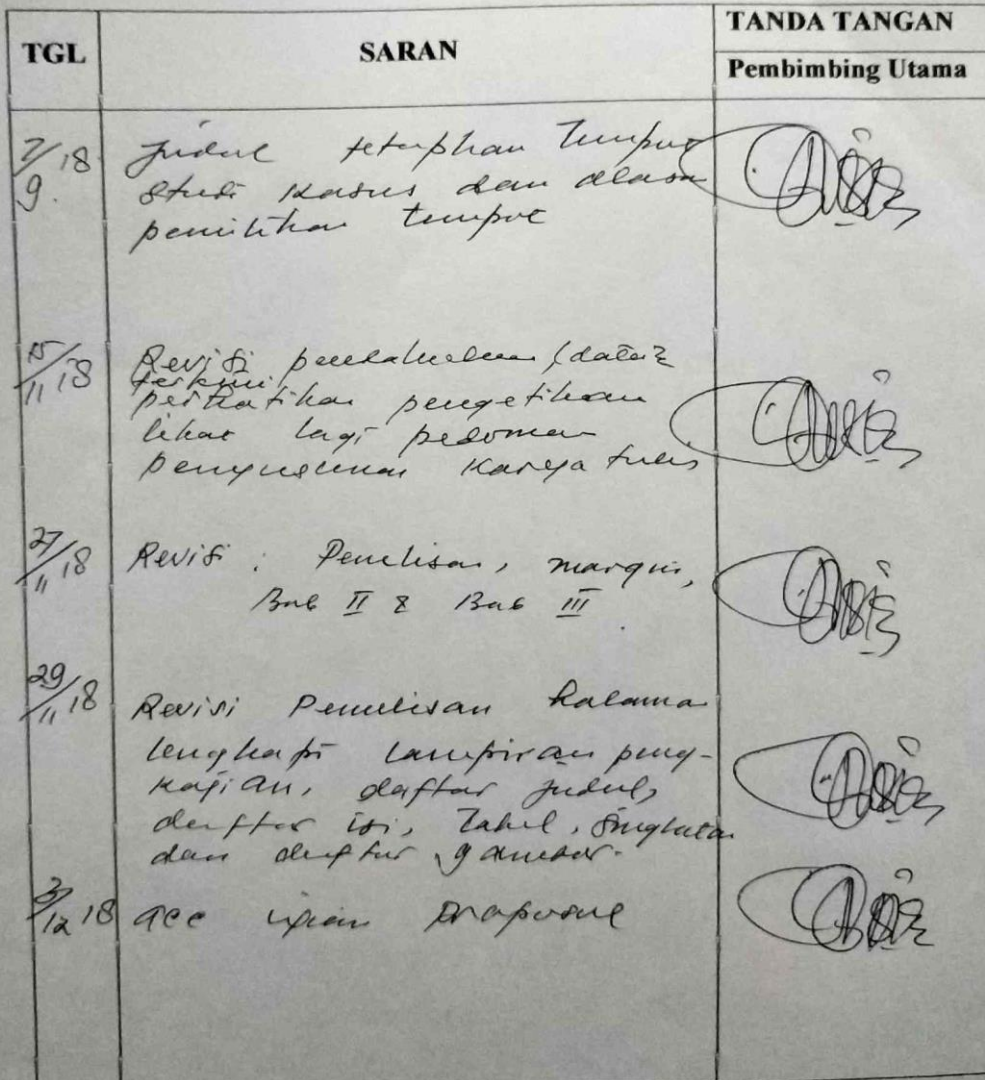 TGL
SARAN
TANDA TANGAN
Pembimbing Utama
7/9 18
Judul tetapkan tempat
studi kasus dan alasan
pemilihan tempat
15/11 18
Revisi pendahuluan (data2
terkini
perhatikan pengetikan
lihat lagi pedoman
penyusunan karya tulis
27/11 18
Revisi : Penulisan, margin,
Bab II & Bab III
29/11 18
Revisi Penulisan halaman
lengkapi lampiran peng-
kajian, daftar judul,
daftar isi, Tabel, Singkatan
dan daftar gambar.
3/12 18
acc ujian proposal